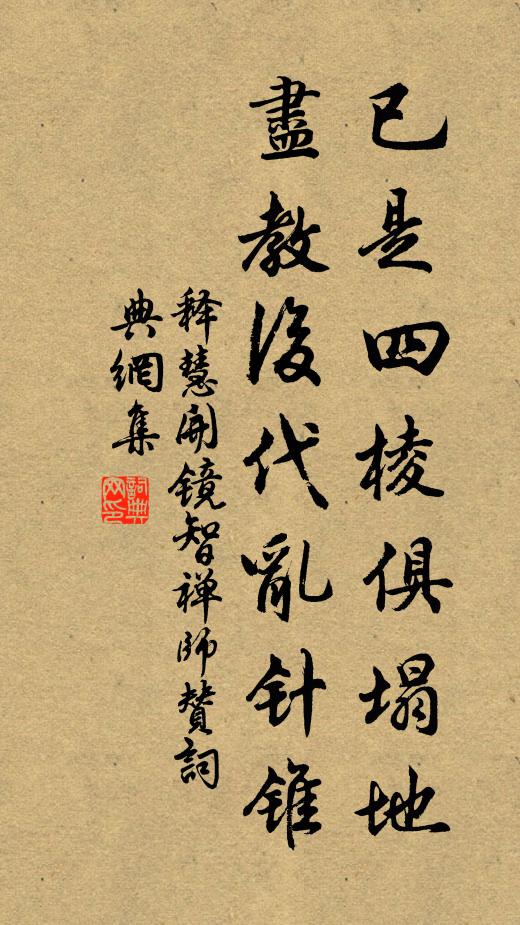 已是四棱俱塌地
盡教後代亂针錐
释慧開鏡智禅師贊詞
典網集
詞典網印